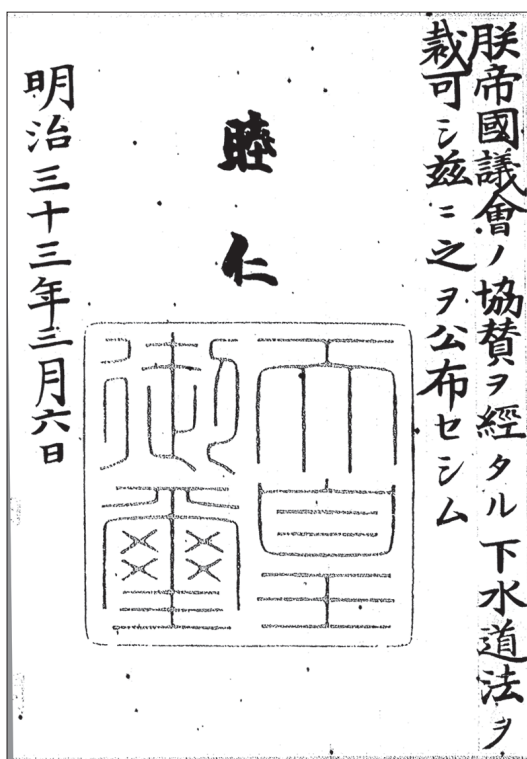 朕帝國議會ノ協賛ヲ經タル下水道法ヲ
裁可シ茲ニ之ヲ公布セシム
睦仁
天皇
御璽
明治三十三年三月六日